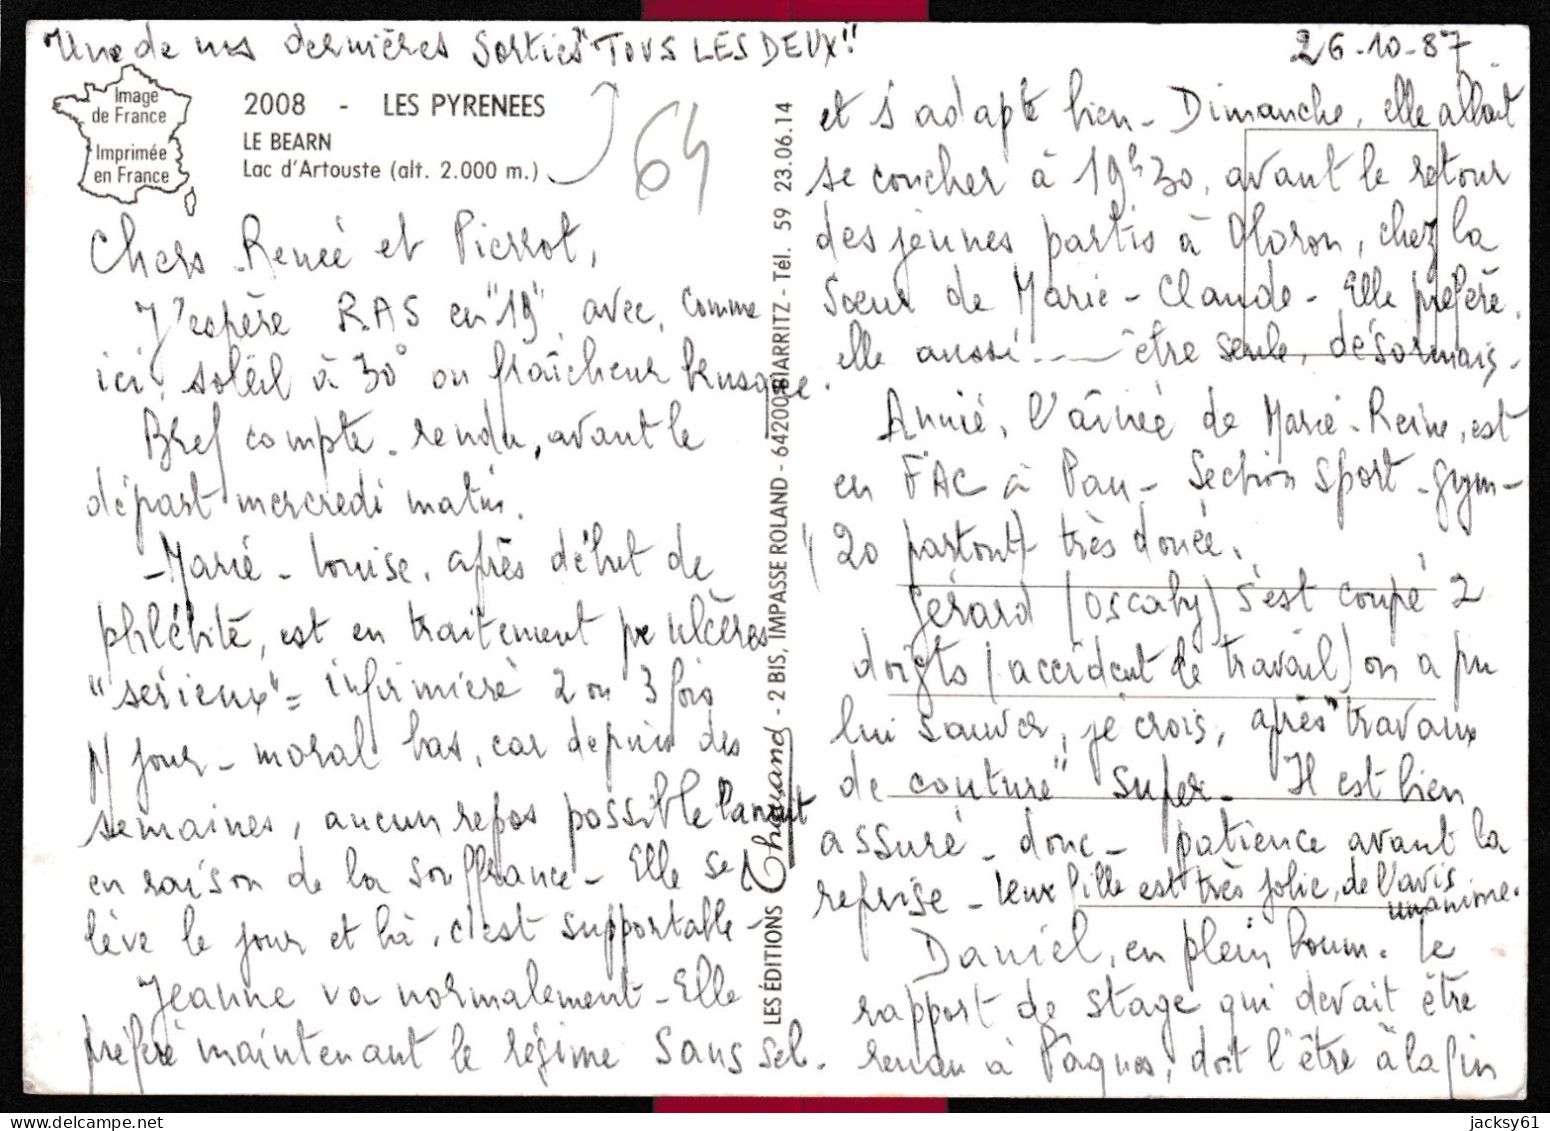 Une de nos dernières sorties "TOUS LES DEUX"
26-10-87
Image
de France
Imprimée
en France
2008 - LES PYRENEES
LE BEARN
Lac d'Artouste (alt. 2.000 m.)
64
Chers Renée et Pierrot,
J'espère RAS en "19", avec, comme
ici, soleil à 30° ou fraîcheur brusque.
Bref compte-rendu, avant le
départ mercredi matin.
- Marie-Louise, après début de
phlébite, est en traitement pr ulcères
"sérieux" = infirmière 2 ou 3 fois
p/ jour - moral bas, car depuis des
semaines, aucun repos possible la nuit
en raison de la souffrance - Elle se
lève le jour et là, c'est supportable -
Jeanne va normalement - Elle
préfère maintenant le régime sans sel.
LES ÉDITIONS Chouand - 2 BIS, IMPASSE ROLAND - 64200 BIARRITZ - Tél. 59 23.06.14
et s'adapte bien - Dimanche, elle allait
se coucher à 19h30, avant le retour
des jeunes partis à Oloron, chez la
soeur de Marie-Claude - Elle préfère,
elle aussi ... être seule, désormais.
Annie, l'aînée de Marie-Reine, est
en FAC à Pau - Section sport-gym -
(20 partout) très douée.
Gérard (Oscaby) s'est coupé 2
doigts (accident de travail) on a pu
lui sauver, je crois, après "travaux
de couture" super - Il est bien
assuré - donc - patience avant la
reprise - leur fille est très jolie, de l'avis
unanime.
Daniel, en plein boum. Le
rapport de stage qui devait être
rendu à Pâques, doit l'être à la fin
jacksy61